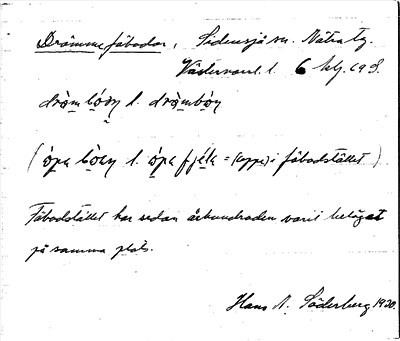 Drömme fäbodar, Sidensjö sn. Nätra tg.
Västernorrl. l. 6 klg. 69 S.
dròm bóǫn l. dròmbǫ́n
(ópa bǫ̀an l. ópa fjéla = (uppe) i fäbodstället)
Fäbodstället har sedan århundraden varit beläget
på samma plats.
Hans N. Söderberg 1930.